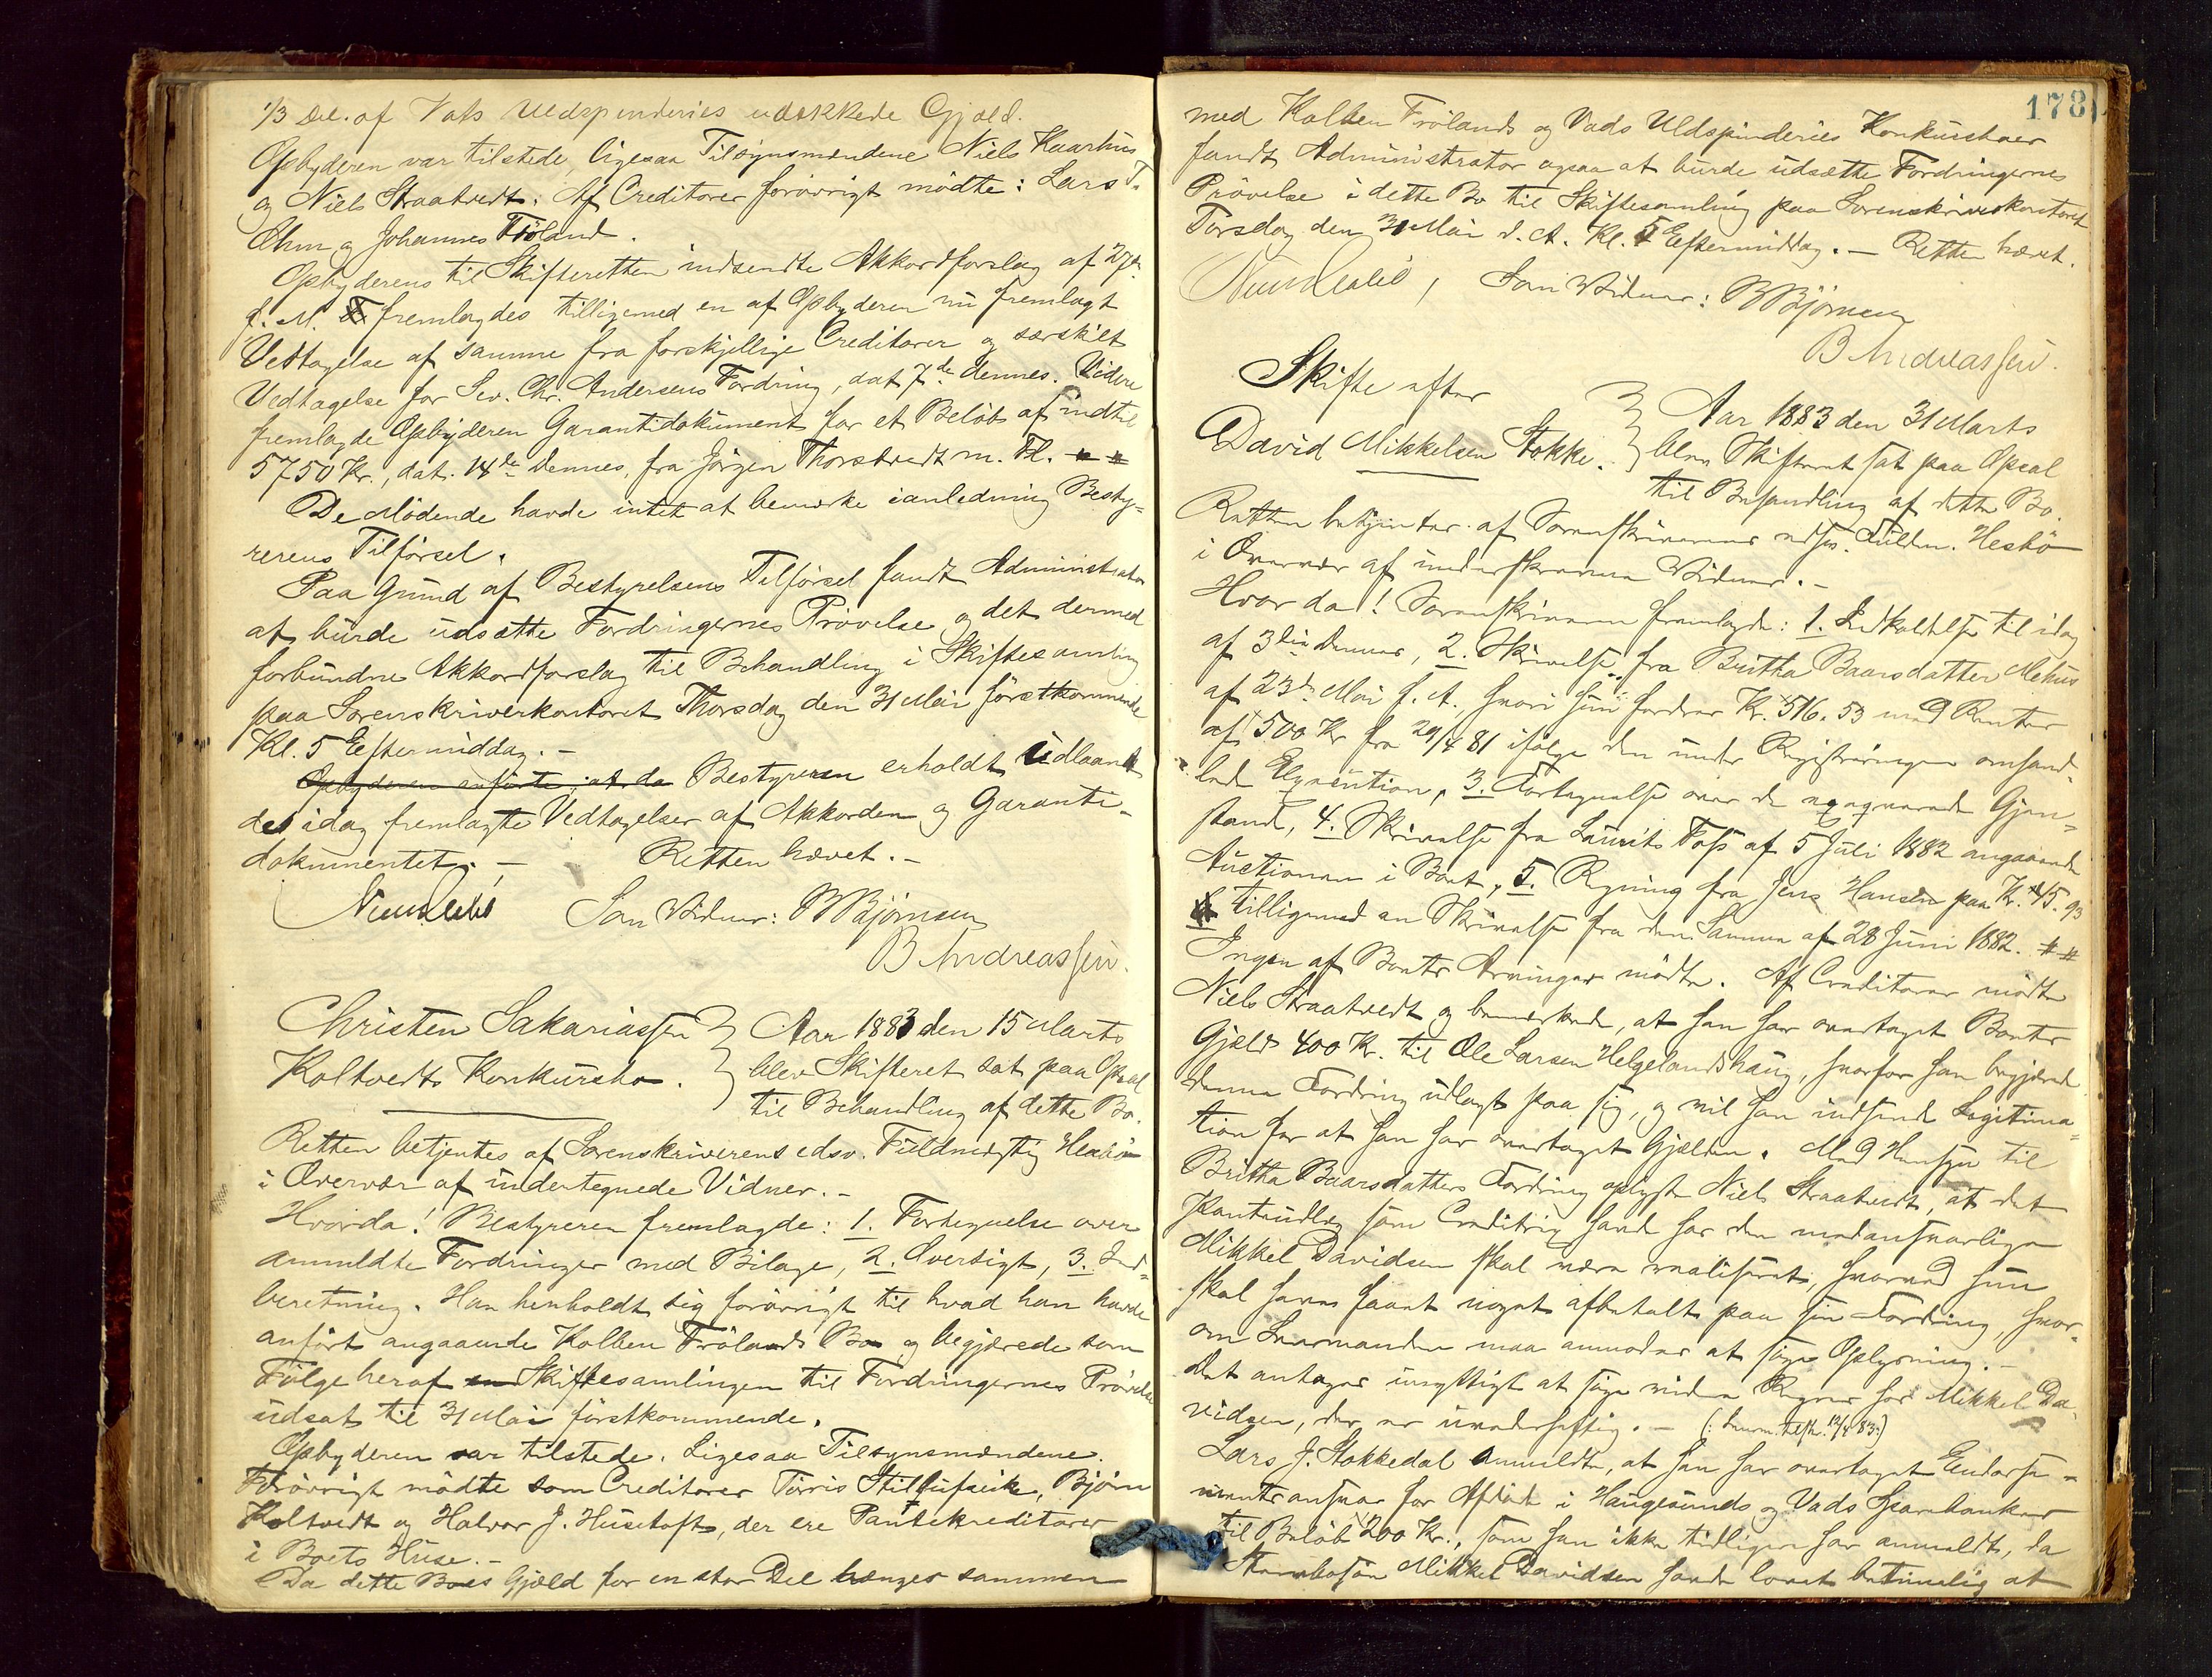 1/3 Del. af Vats Uldspinderies udækkede Gjæld.
Opbyderen var tilstede, ligesaa Tilsynsmændene Niels Kaarhus
og Niels Straatvedt. Af Creditorer forøvrigt mødte: Lars T.
Øhrn og Johannes Fröland.
Opbyderens til Skifteretten indsendte Akkordforslag af 27de
f. M. fremlagdes tilligemed en af Opbyderen nu fremlagt
Vedtagelse af samme fra forskjellige Creditorer og særskilt
Vedtagelse for Sev. Chr. Andersens Fordring, dat 7de dennes. Videre
fremlagde Opbyderen Garantidokument for et Beløb af indtil
5750 Kr., dat. 14de dennes, fra Jörgen Thorstvedt m. Fl.
De Mødende havde intet at bemærke ianledning Besty-
rerens Tilførsel.
Paa Grund af Bestyrelsens Tilførsel fandt Administrator
at burde udsætte Fordringernes Prøvelse og det dermed
forbundne Akkordforslag til Behandling i Skiftesamling
paa Sorenskriverkontoret Thorsdag den 31 Mai førstkommende
Kl. 5 Eftermiddag. -
Opbyderen anførte, at da Bestyreren erholdt Udlaant
de idag fremlagte Vedtagelser af Akkorden og Garanti-
dokumentet. - Retten hævet. -
Som Vidner: B Bjørnsen
B Andreassen.
Christen Sakariassen Aar 1883 den 15 Marts
Koltvedts Konkursbo. blev Skifteret sat paa Opsal
til Behandling af dette Bo.
Retten betjentes af Sorenskriverens edsv. Fuldmægtig Heskö
i Overvær af undertegnede Vidner. -
Hvorda! Bestyreren fremlagde: 1. Fortegnelse over
anmeldte Fordringer med Bilage, 2. Oversigt, 3. Ind-
beretning. Han henholdt sig forøvrigt til hvad han havde
anført angaaende Kolben Frølands Bo og begjærede som
Følge heraf Skiftesamlingen til Fordringernes Prøvelse
udsat til 31 Mai førstkommende.
Opbyderen var tilstede. Ligesaa Tilsynsmændene.
Forøvrigt mødte som Creditorer Torris, Bjørn
Koltvedt og Halvor J. Husetoft, der ere Pantekreditorer
i Boets Huse. -
Da dette Boes Gjæld for en stor Del hænger sammen
178
med Kolben Frølands og Vads Uldspinderies Konkursboer
fandt Administrator ogsaa at burde udsætte Fordringernes
Prøvelse i dette Bo til Skiftesamling paa Sorenskriverkontoret
Torsdag den 31 Mai d. A. Kl. 5 Eftermiddag. - Retten hævet.
Som Vidner: B Bjørnsen
B Andreassen.
Skifte efter Aar 1883 den 31 Marts
David Mikkelsen Stokke. blev Skifteret sat paa Opsal
til Behandling af dette Bo.
Retten betjentes af Sorenskriverens edsv. Fuldm. Heskö
i Overvær af underskrevne Vidner. -
Hvorda! Sorenskriveren fremlagde: 1. Indkaldelse til idag
af 3die dennes, 2. Skrivelse fra Britha Baarsdatter Mehus
af 23de Mai f. A., hvori hun fordrer Kr. 516.53 med Renter
af 500 Kr fra 29/4 81 ifølge den under Registreringen omhand-
lede Exekution, 3. Fortegnelse over de exeqverede Gjen-
stande, 4. Skrivelse fra Laurits Foss af 5 Juli 1882 angaaende
Auctionen i Boet, 5. Regning fra Jens Hansen paa Kr. 45.93
tilligemed en Skrivelse fra den Samme af 28 Juni 1882.
Ingen af Boets Arvinger mødte. Af Creditorer mødte
Niels Straatvedt og bemærkede, at han har overtaget Boets
Gjæld 400 Kr. til Ole Larsen Helgelandshaug, hvorfor han begjærede
denne Fordring udlagt paa sig, og vil han indsende Legitima-
tion for at han har overtaget Gjælden. Med Hensyn til
Britha Baarsdatters Fordring oplyste Niels Straatvedt, at det
Pantudlæg som Creditrix havde hos den medansvarlige
Mikkel Davidsen skal være realiseret, hvorved hun
skal have faaet noget afbetalt paa sin Fordring, hvor-
om Lensmanden maa anmodes at søge Oplysning. -
Det antages unyttigt at søge videre Regres hos Mikkel Da-
vidsen, der er uvederheftig. - (: Lensm. tilskr. 12/4 83:)
Lars J. Stokkedal anmeldte, at han har overtaget Endosse-
mentsansvar for Afdøde i Haugesunds og Vads Sparebanker
til Beløb 200 Kr., som han ikke tidligere har anmeldt, da
Stervbosøn Mikkel Davidsen havde lovet betimelig at